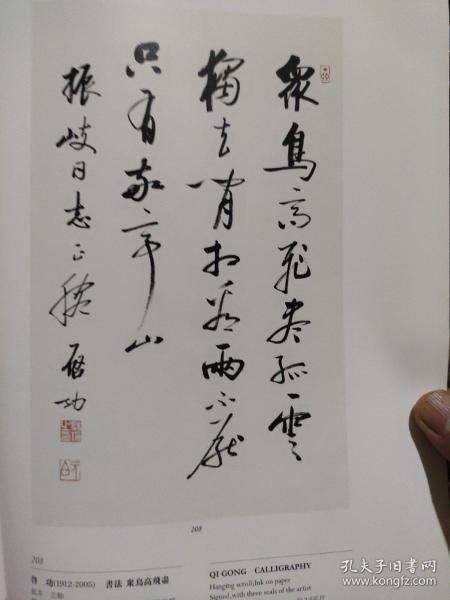 衆鳥高飛盡孤雲
獨去閒相看兩不厭
只有敬亭山
振岐同志正腕 啟功
208
208
啓 功(1912-2005) 書法 衆鳥高飛盡
QI GONG CALLIGRAPHY
Hanging scroll;Ink on paper
Signed,with three seals of the artist
孔夫子旧书网